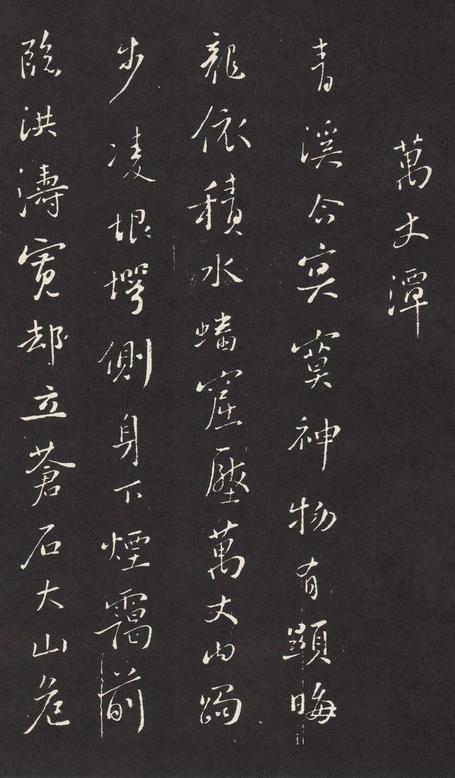 萬丈潭
青溪合冥寞神物有顯晦
龍依積水蟠窟壓萬丈内跼
步凌垠堮側身下煙靄前
臨洪濤寬却立蒼石大山危